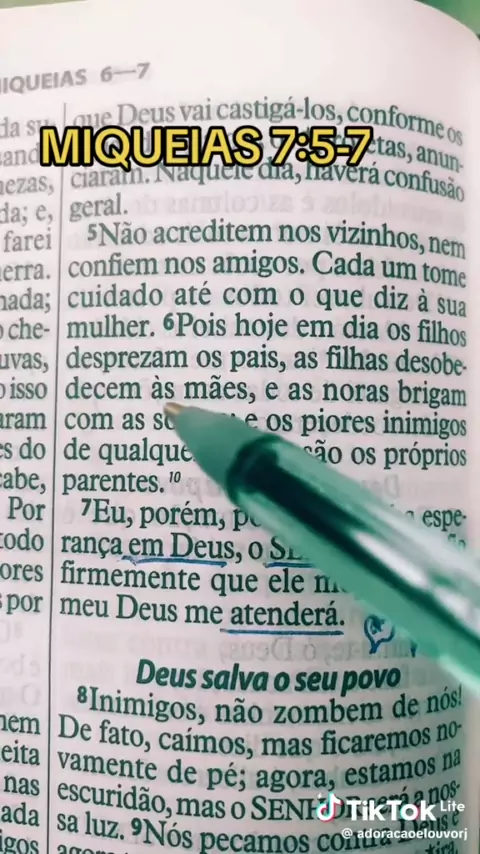 MIQUEIAS 6—7
MIQUEIAS 7:5-7
que Deus vai castigá-los, conforme os
etas, anun-
ciaram. Naquele dia, haverá confusão
geral.
5Não acreditem nos vizinhos, nem
confiem nos amigos. Cada um tome
cuidado até com o que diz à sua
mulher. 6Pois hoje em dia os filhos
desprezam os pais, as filhas desobe-
decem às mães, e as noras brigam
com as e os piores inimigos
de são os próprios
parentes.10
7Eu, porém, espe-
rança em Deus, o
firmemente que ele
meu Deus me atenderá.
Deus salva o seu povo
8Inimigos, não zombem de nós!
De fato, caímos, mas ficaremos no-
vamente de pé; agora, estamos na
escuridão, mas o a nos-
sa luz. 9Nós pecamos
farei
isso
do
Por
por
nas
TikTok Lite
@adoracaoelouvorj